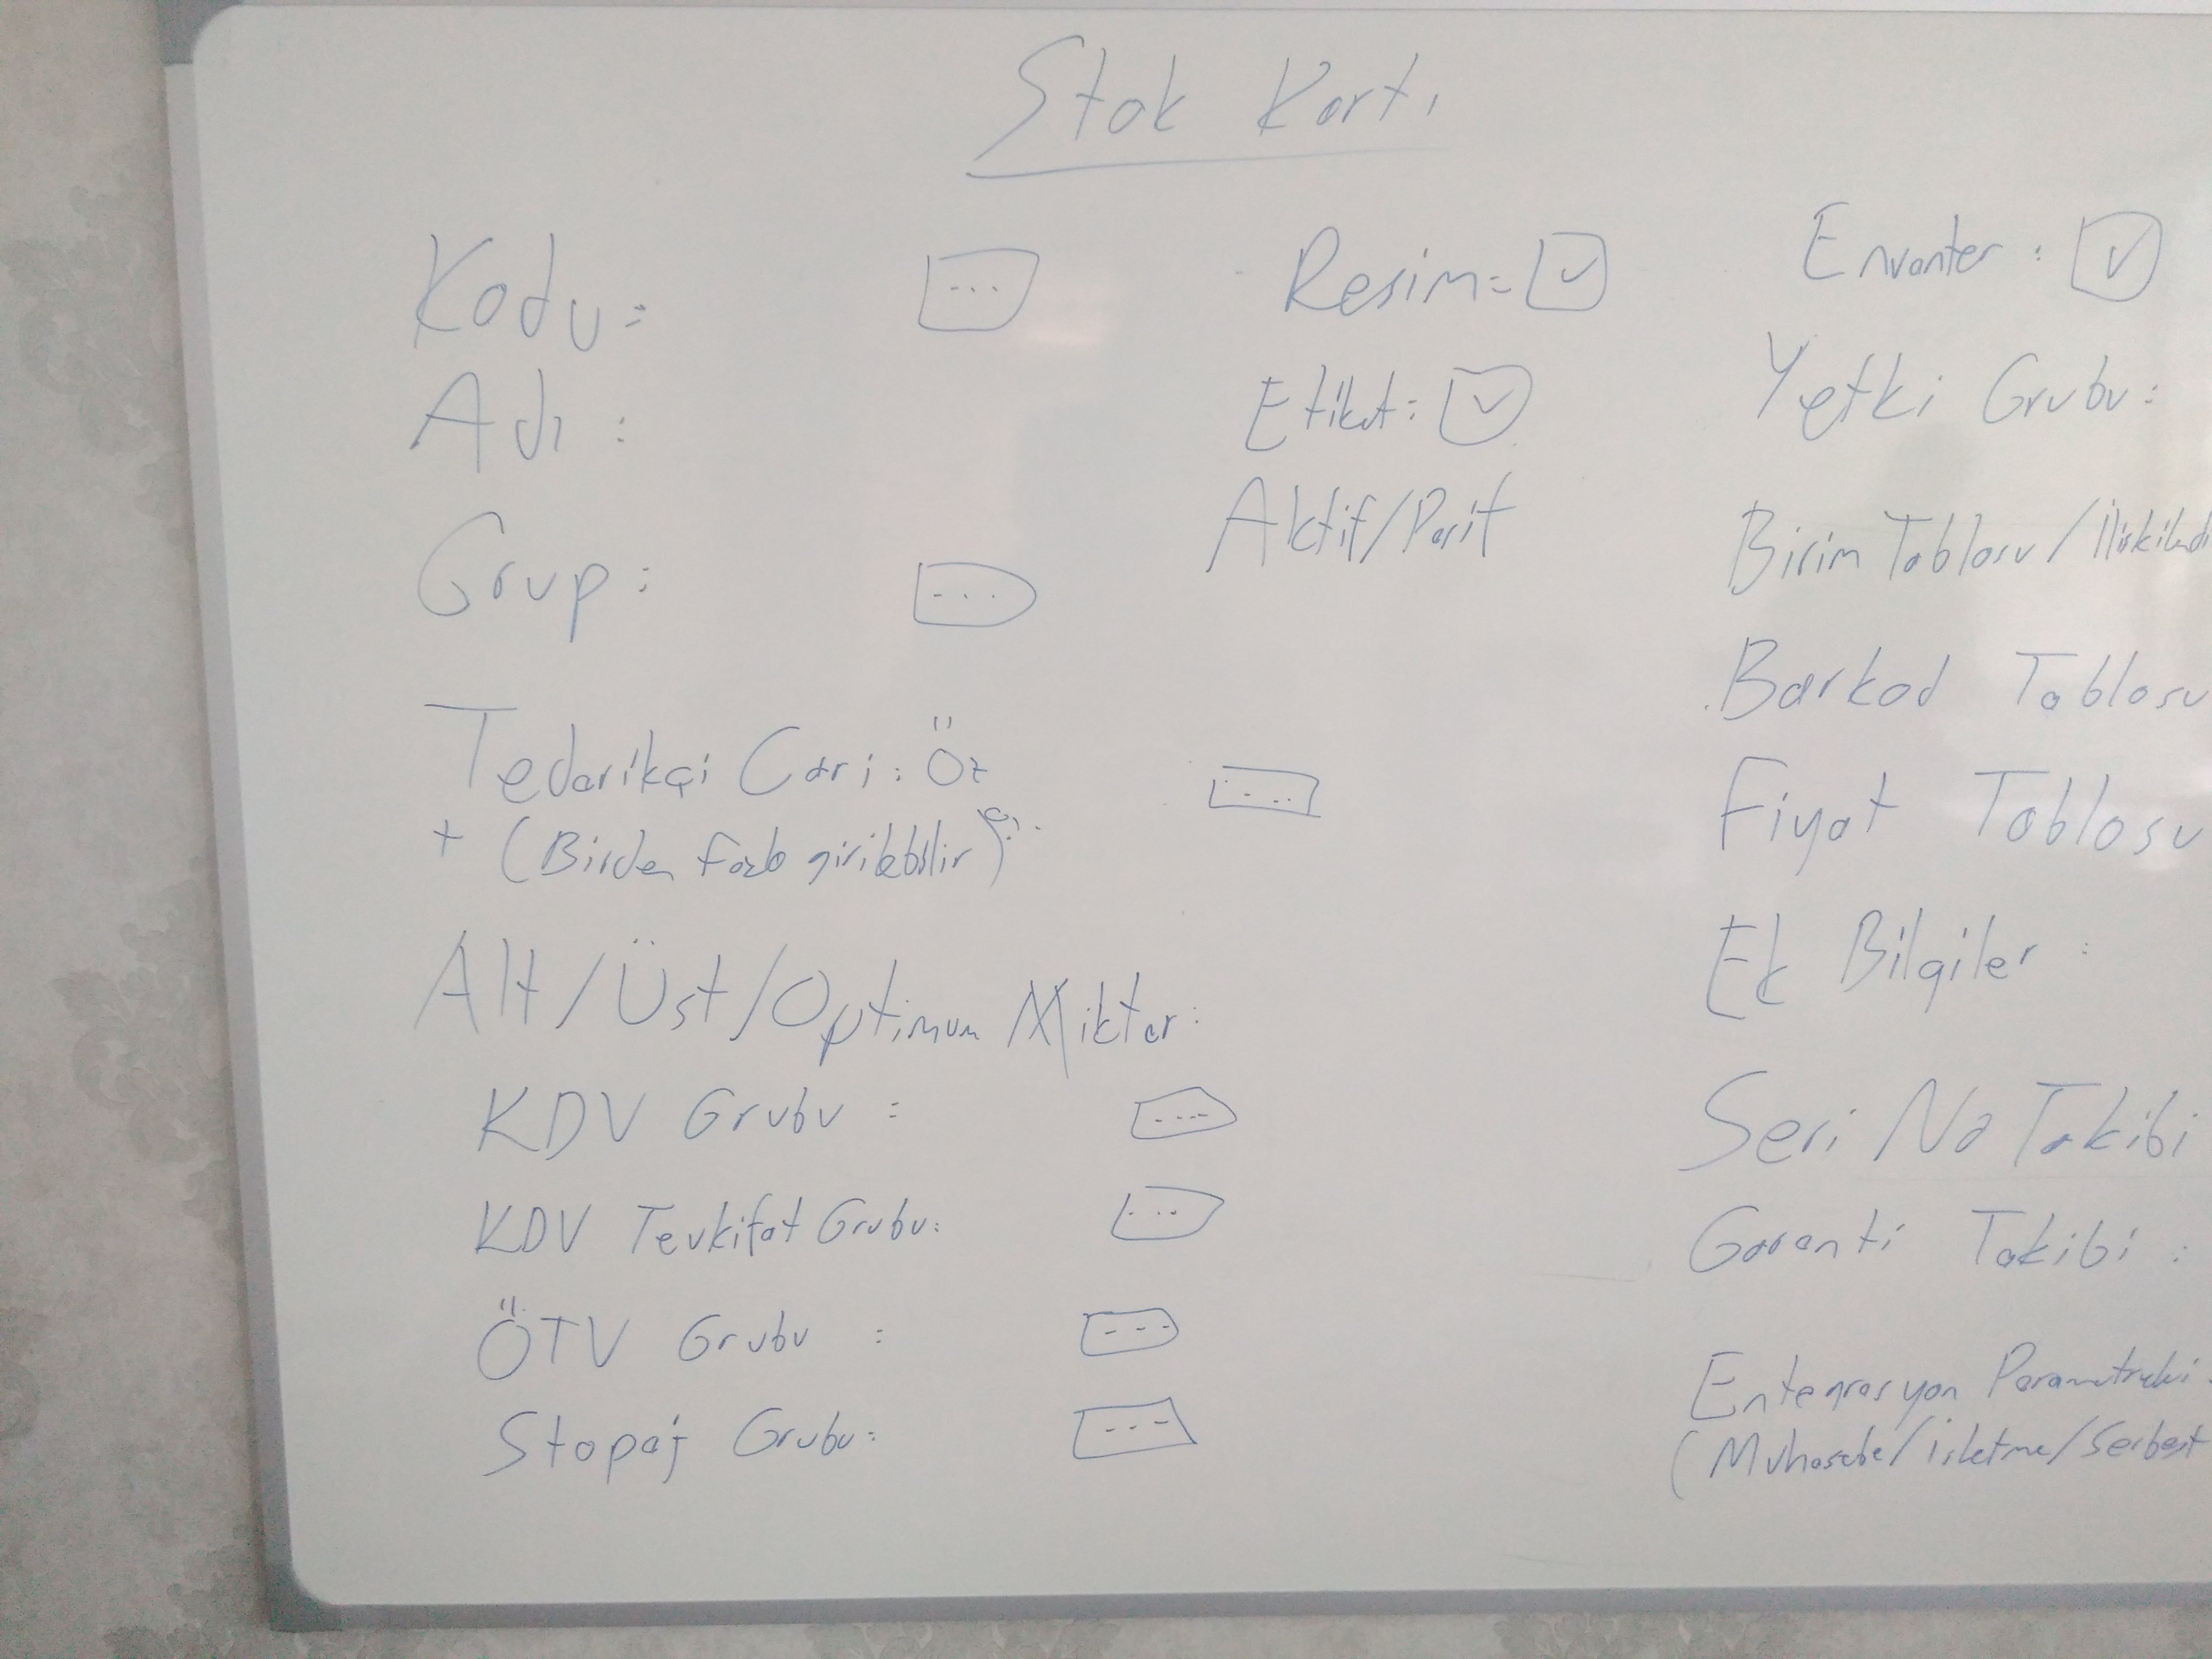 Stok Kartı
Kodu: ...
Adı:
Grup: ...
Tedarikçi Cari: Öz ...
+ (Birden fazla girilebilir)
Alt/Üst/Optimum Miktar:
KDV Grubu: ...
KDV Tevkifat Grubu: ...
ÖTV Grubu: ...
Stopaj Grubu: ...
Resim: ✓
Etiket: ✓
Aktif/Pasif
Envanter: ✓
Yetki Grubu:
Birim Tablosu/
Barkod Tablosu
Fiyat Tablosu
Ek Bilgiler:
Seri No Takibi
Garanti Takibi:
Entegrasyon Parametreleri
(Muhasebe/işletme/Serbest